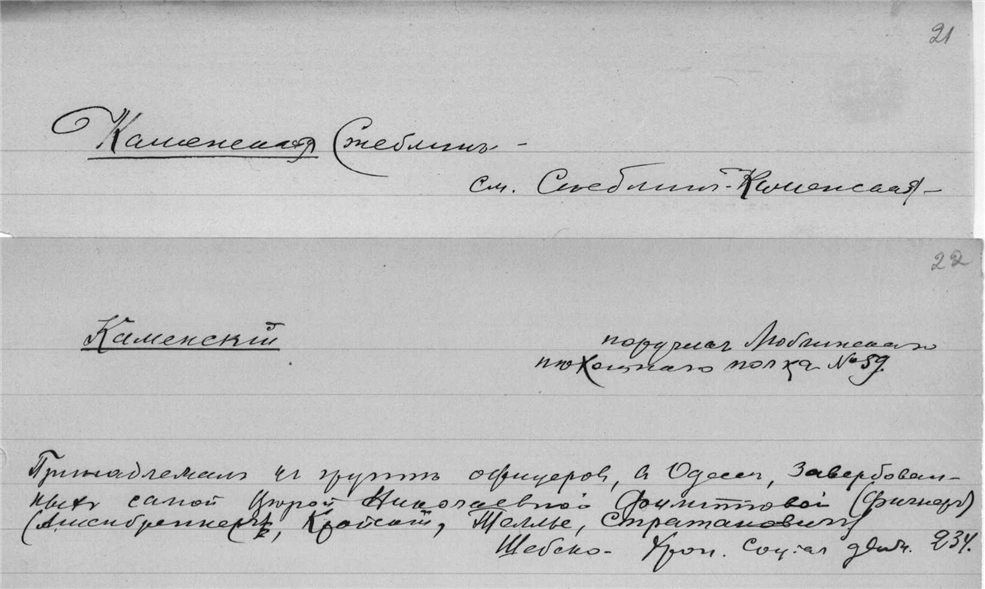 21
Каменская Стеблинъ -
см. Стеблинъ-Каменская -
22
Каменскій
поручикъ Люблинскаго
пѣхотнаго полка № 59.
Принадлежалъ къ группѣ офицеров, в Одессѣ, завербован-
ныхъ самой Вѣрой Николаевной Филипповой (Фигнеръ)
Крайскій, Телье, Стратановичъ
Шебеко - Хрон. Соц-ал движ. 234.